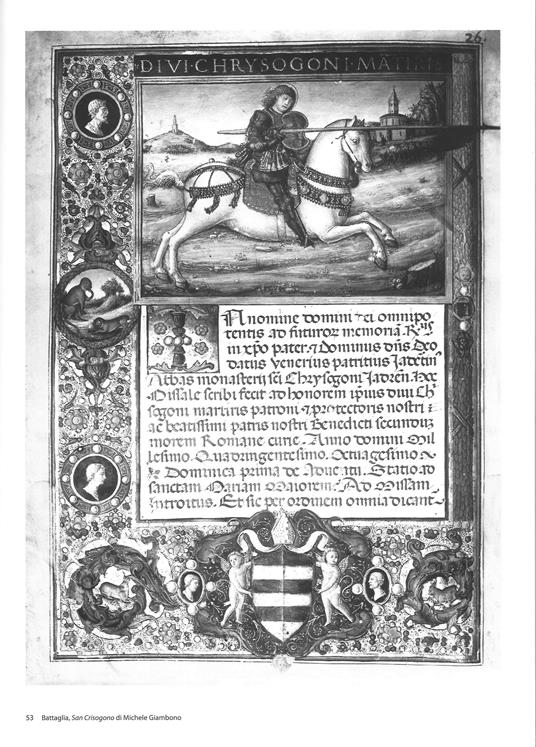 26.
DIVI·CHRYSOGONI·MATIRIS
N nomine domini dei omnipo
tentis ad futuror memoriã R
in xpo pater & Dominus dñs Deo
datus Venerius patritius Jadeтiñ
Abbas monasterij sci Chrysogoni Jadreñ Hoc
Missale scribi fecit ad honorem ipsius diui Ch
sogoni martiris patroni & protectoris nostri
ac beatissimi patris nostri Benedicti secundum
morem Romane curie. Anno domini Mil
lesimo. Quadringentesimo. Octuagesimo
Dominica prima de Aduentu. Statio ad
sanctam Mariam Maiorem. Ad Missam
Introitus. Et sic per ordinem omnia dicant
53 Battaglia, San Crisogono di Michele Giambono